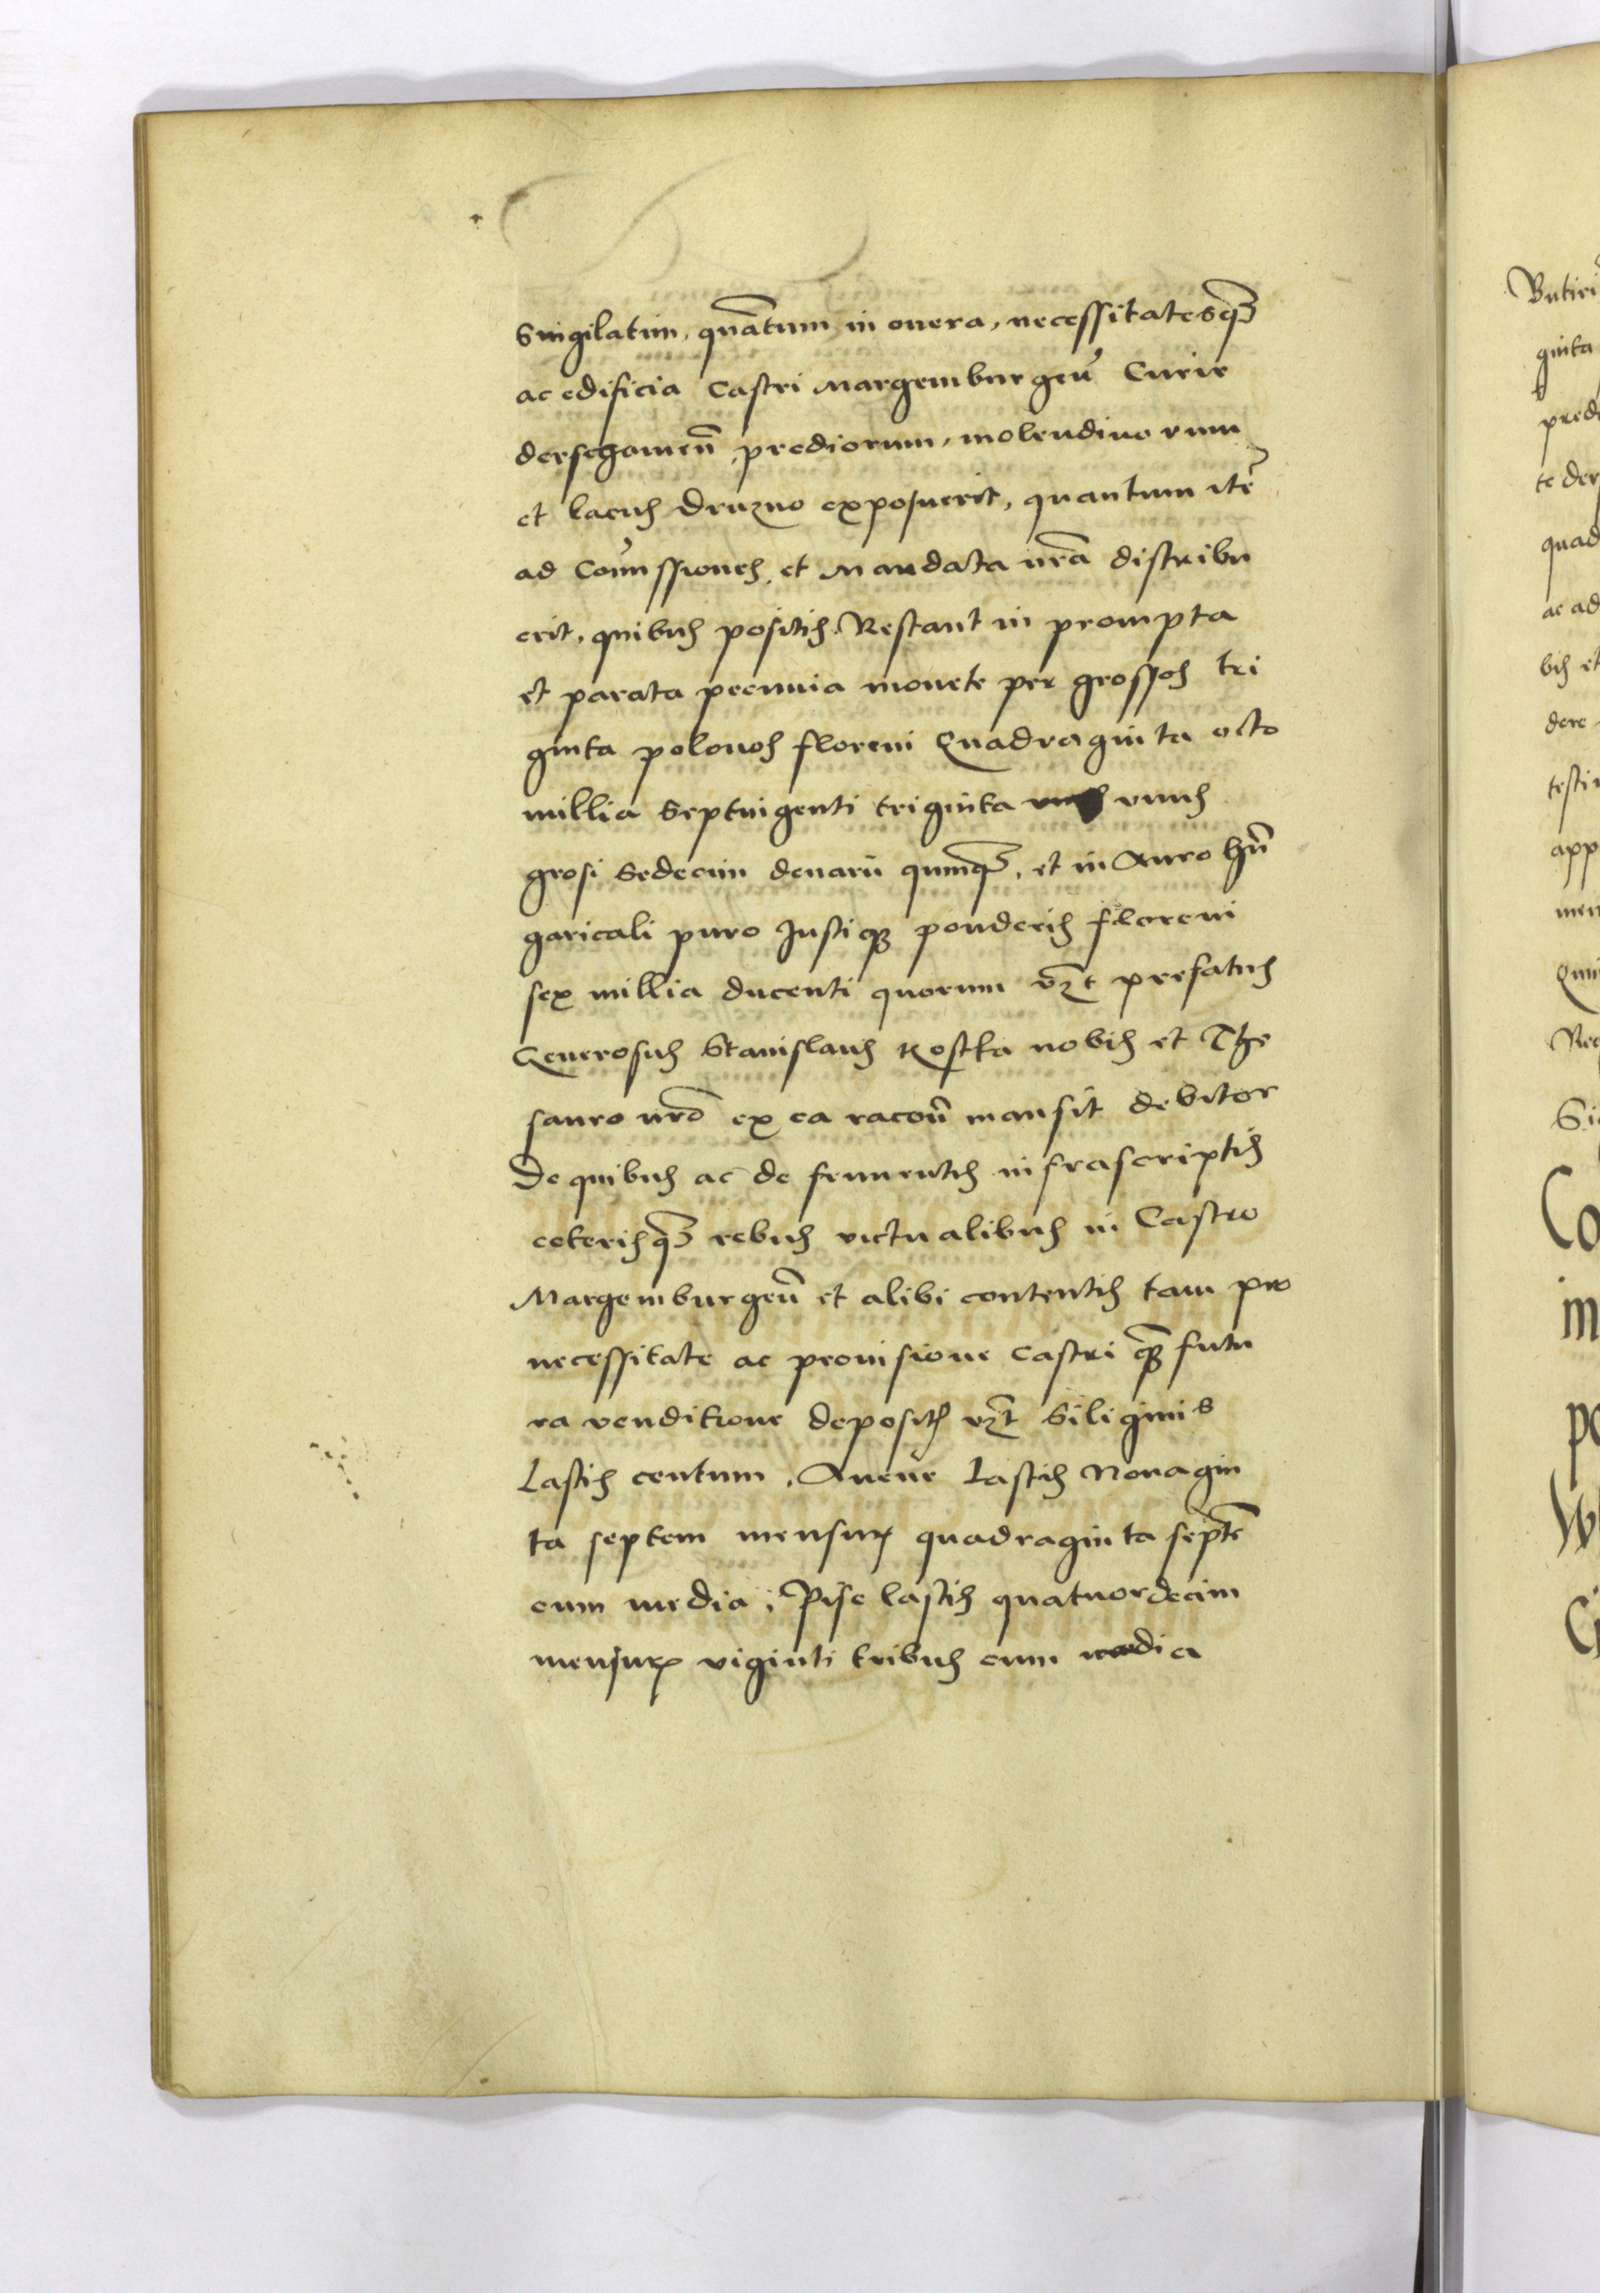 Singilatim, quātum in onera, necessitatesq̃
ac edificia Castri Margemburgeñ Curie
dersgomeñ, prediorum, molendino rum
et lacus druzno exposuerit, quantum itē
ad Com̄ssiones, et Mandata nrā distribu
erit, quibus positis Restant in prompta
et parata pecunia monete per grossos tri
ginta polonos floreni Quadraginta octo
millia Septuigenti triginta unus
grosi Sedecim denarii quinq̃, et in Auro hũ
garicali puro Justiq̃ ponderis floreni
sex millia ducenti quorum vz̄t prefatus
Generosus Stanislaus Kostka nobis et The
sauro nrō ex ea racoñ mansit debitor
De quibus ac de frumentis infrascriptis
ceterisq̃ rebus victualibus in Castro
Margemburgeñ et alibi contentis tam pro
necessitate ac prouisione castri q̃ futu
ra venditione depositis vz̄t Siliginis
Lastis centum, Auene Lastis Nonagin
ta septem mensuris quadraginta septē
cum media, Pise lastis quatuordecim
mensuris viginti tribus cum media
Butiri
ginta
pred
te der
quad
ac ad
bis et
dere
testi
app
men
Qui
Rec
Si
Co
in
po